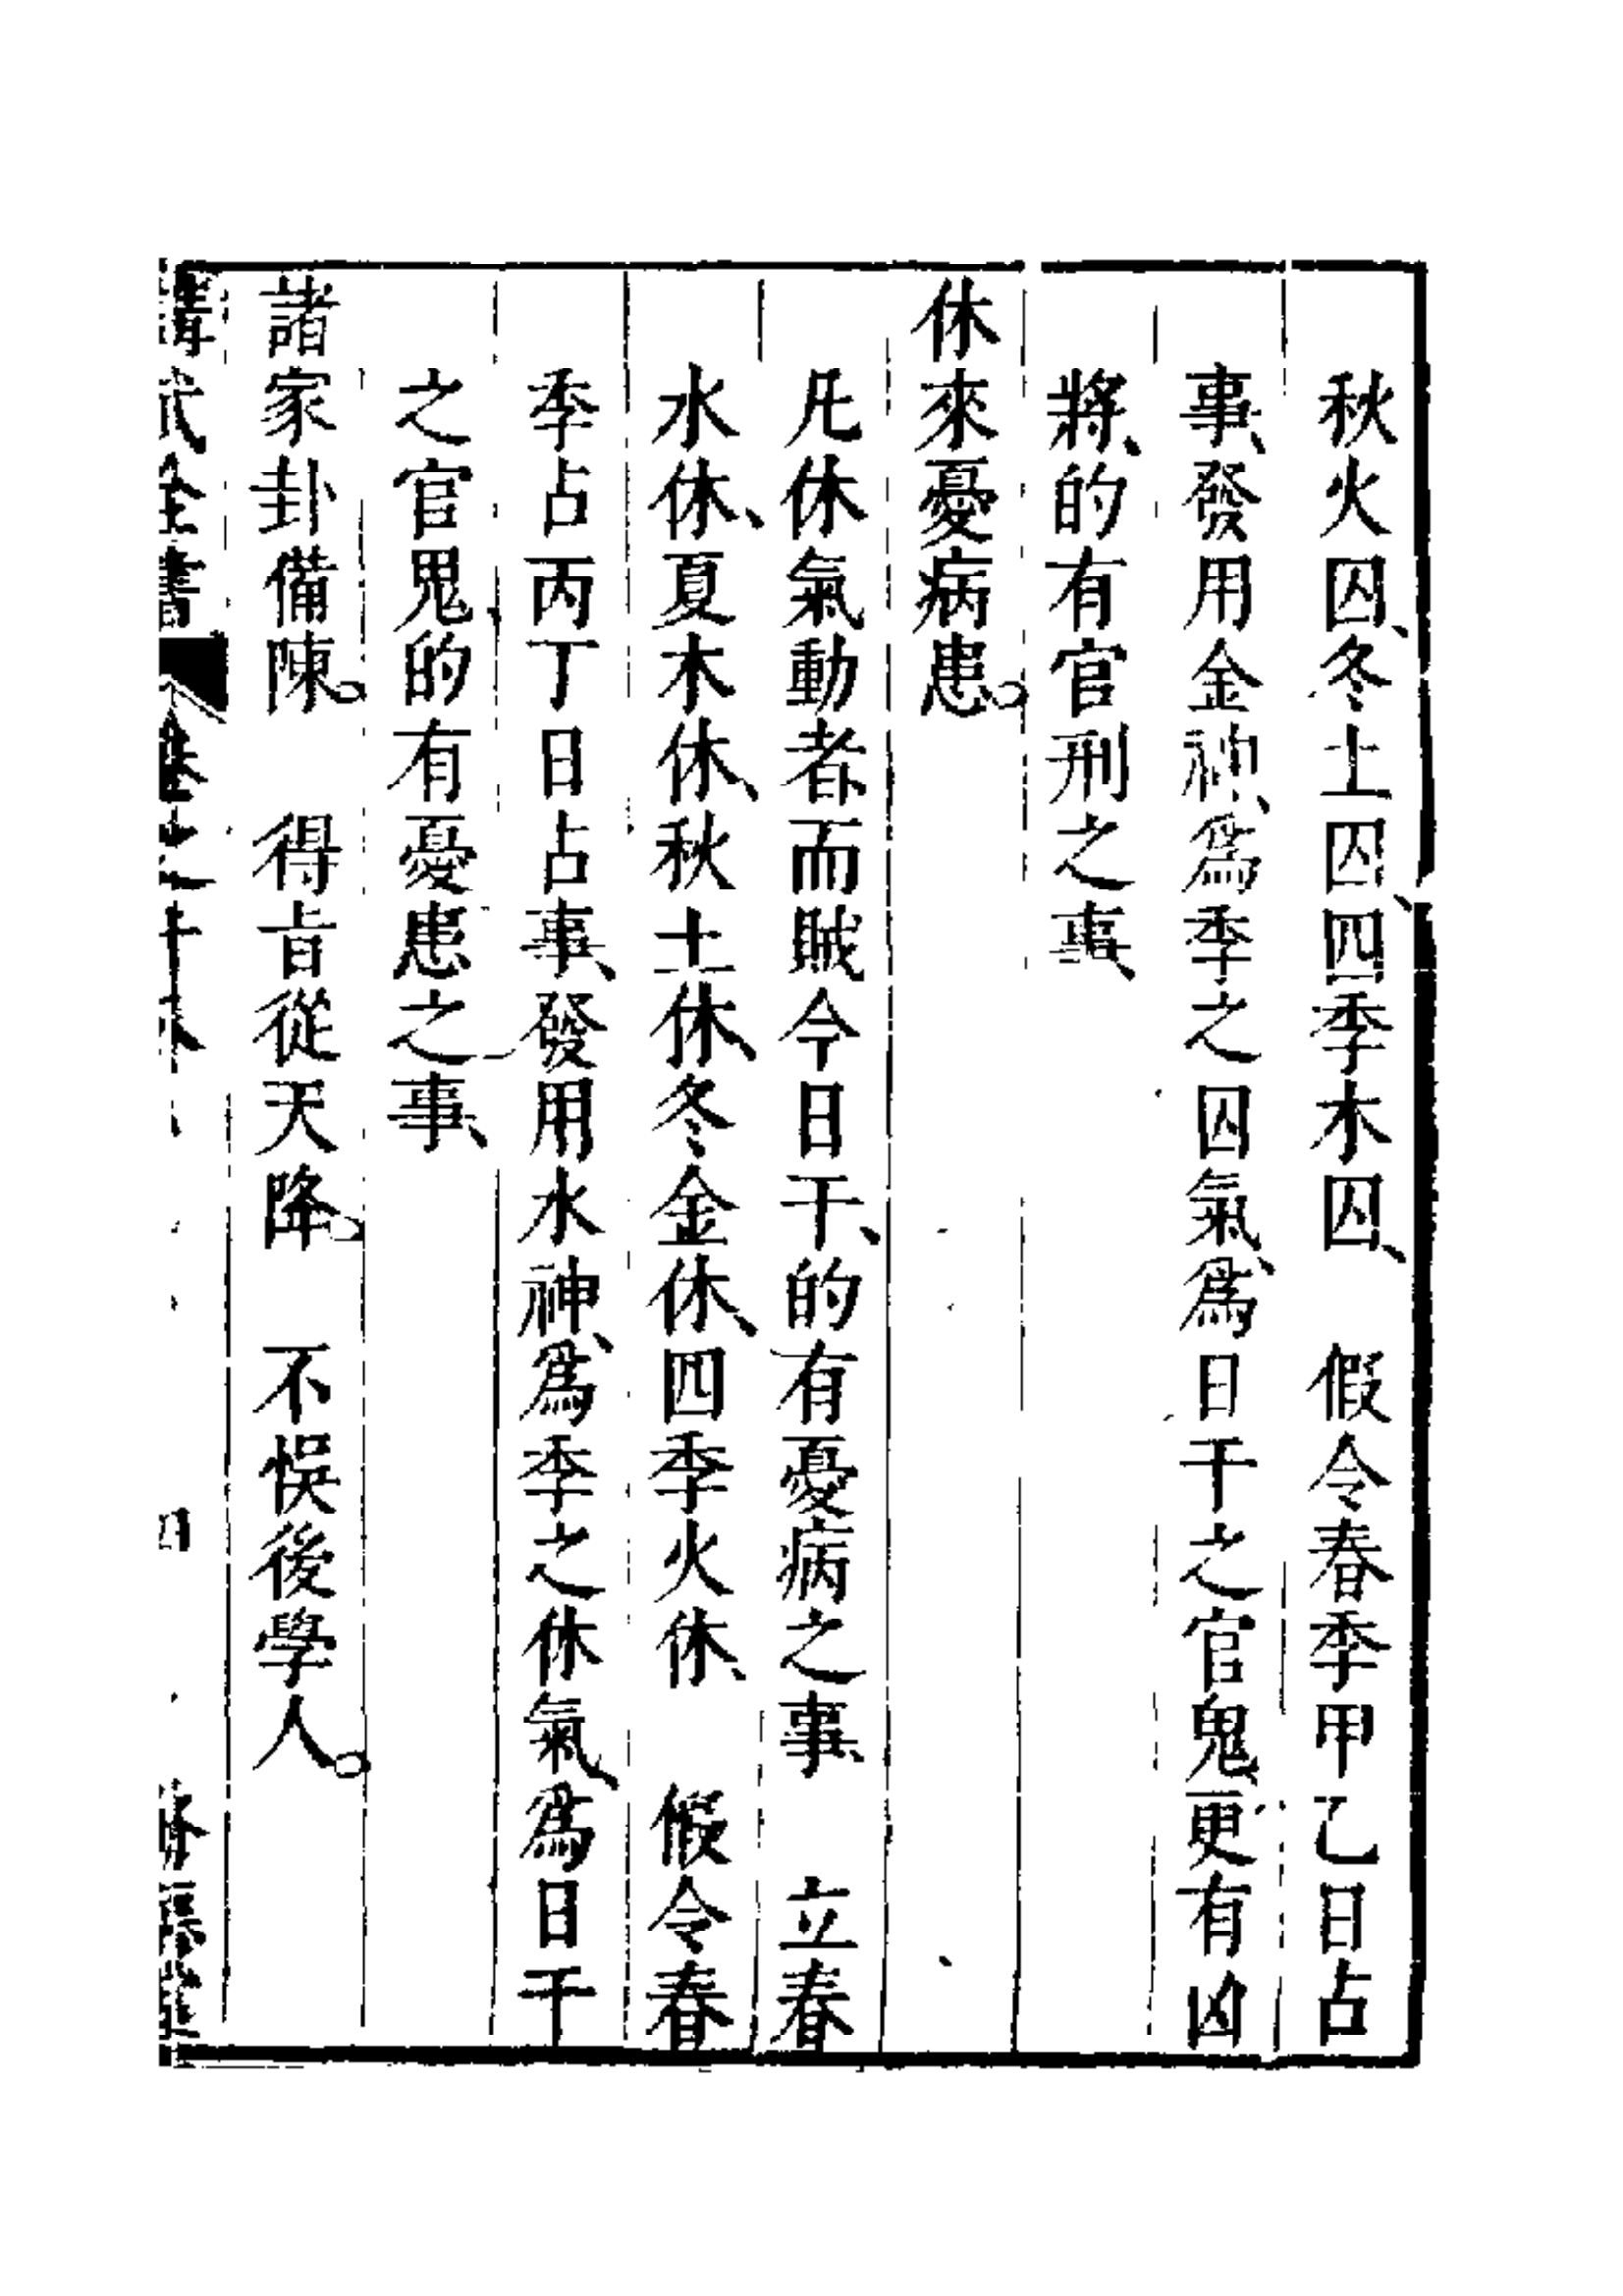 秋火囚、冬土囚、四季木囚、　假令春季甲乙日占
事、發用金神、爲季之囚氣、爲日干之官鬼、更有凶
將、的有官刑之事、
休來憂病患。
凡休氣動者而賊今日干、的有憂病之事、　立春
水休、夏木休、秋土休、冬金休、四季火休、　假令春
季占丙丁日占事、發用水神、爲季之休氣、爲日干
之官鬼的有憂患之事、
諸家卦備陳。　得旨從天降。　不悮後學人。